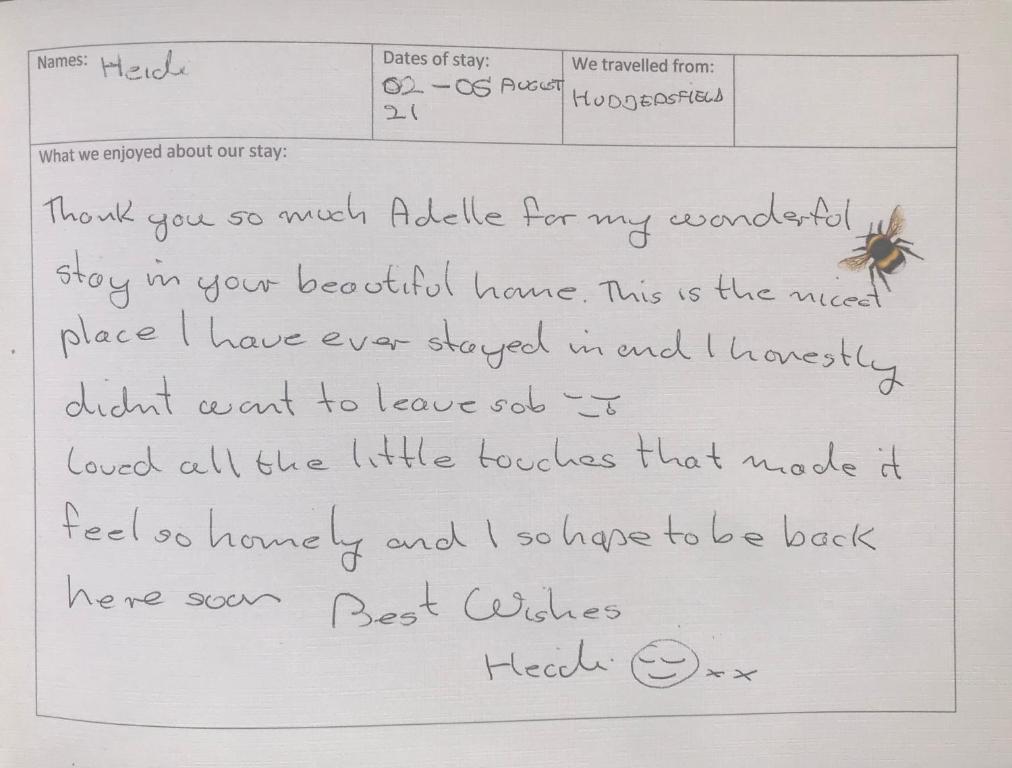 Names: Heidi
Dates of stay:
02 - 05 AUGUST
21
We travelled from:
HUDDERSFIELD
What we enjoyed about our stay:
Thank you so much Adelle for my wonderful
stay in your beautiful home. This is the nicest
place I have ever stayed in and I honestly
didnt want to leave sob
Loved all the little touches that made it
feel so homely and I so hope to be back
here soon Best Wishes
Heidi xx